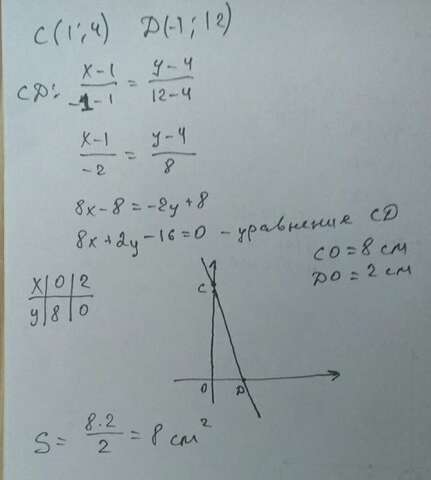 C(1;4) D(-1;12)
CD: (x-1)/(-1-1) = (y-4)/(12-4)
(x-1)/(-2) = (y-4)/8
8x-8=-2y+8
8x+2y-16=0 - уравнение CD
CO=8 см
DO=2 см
x | 0 | 2
y | 8 | 0
C
O D
S= (8·2)/2 = 8 см²